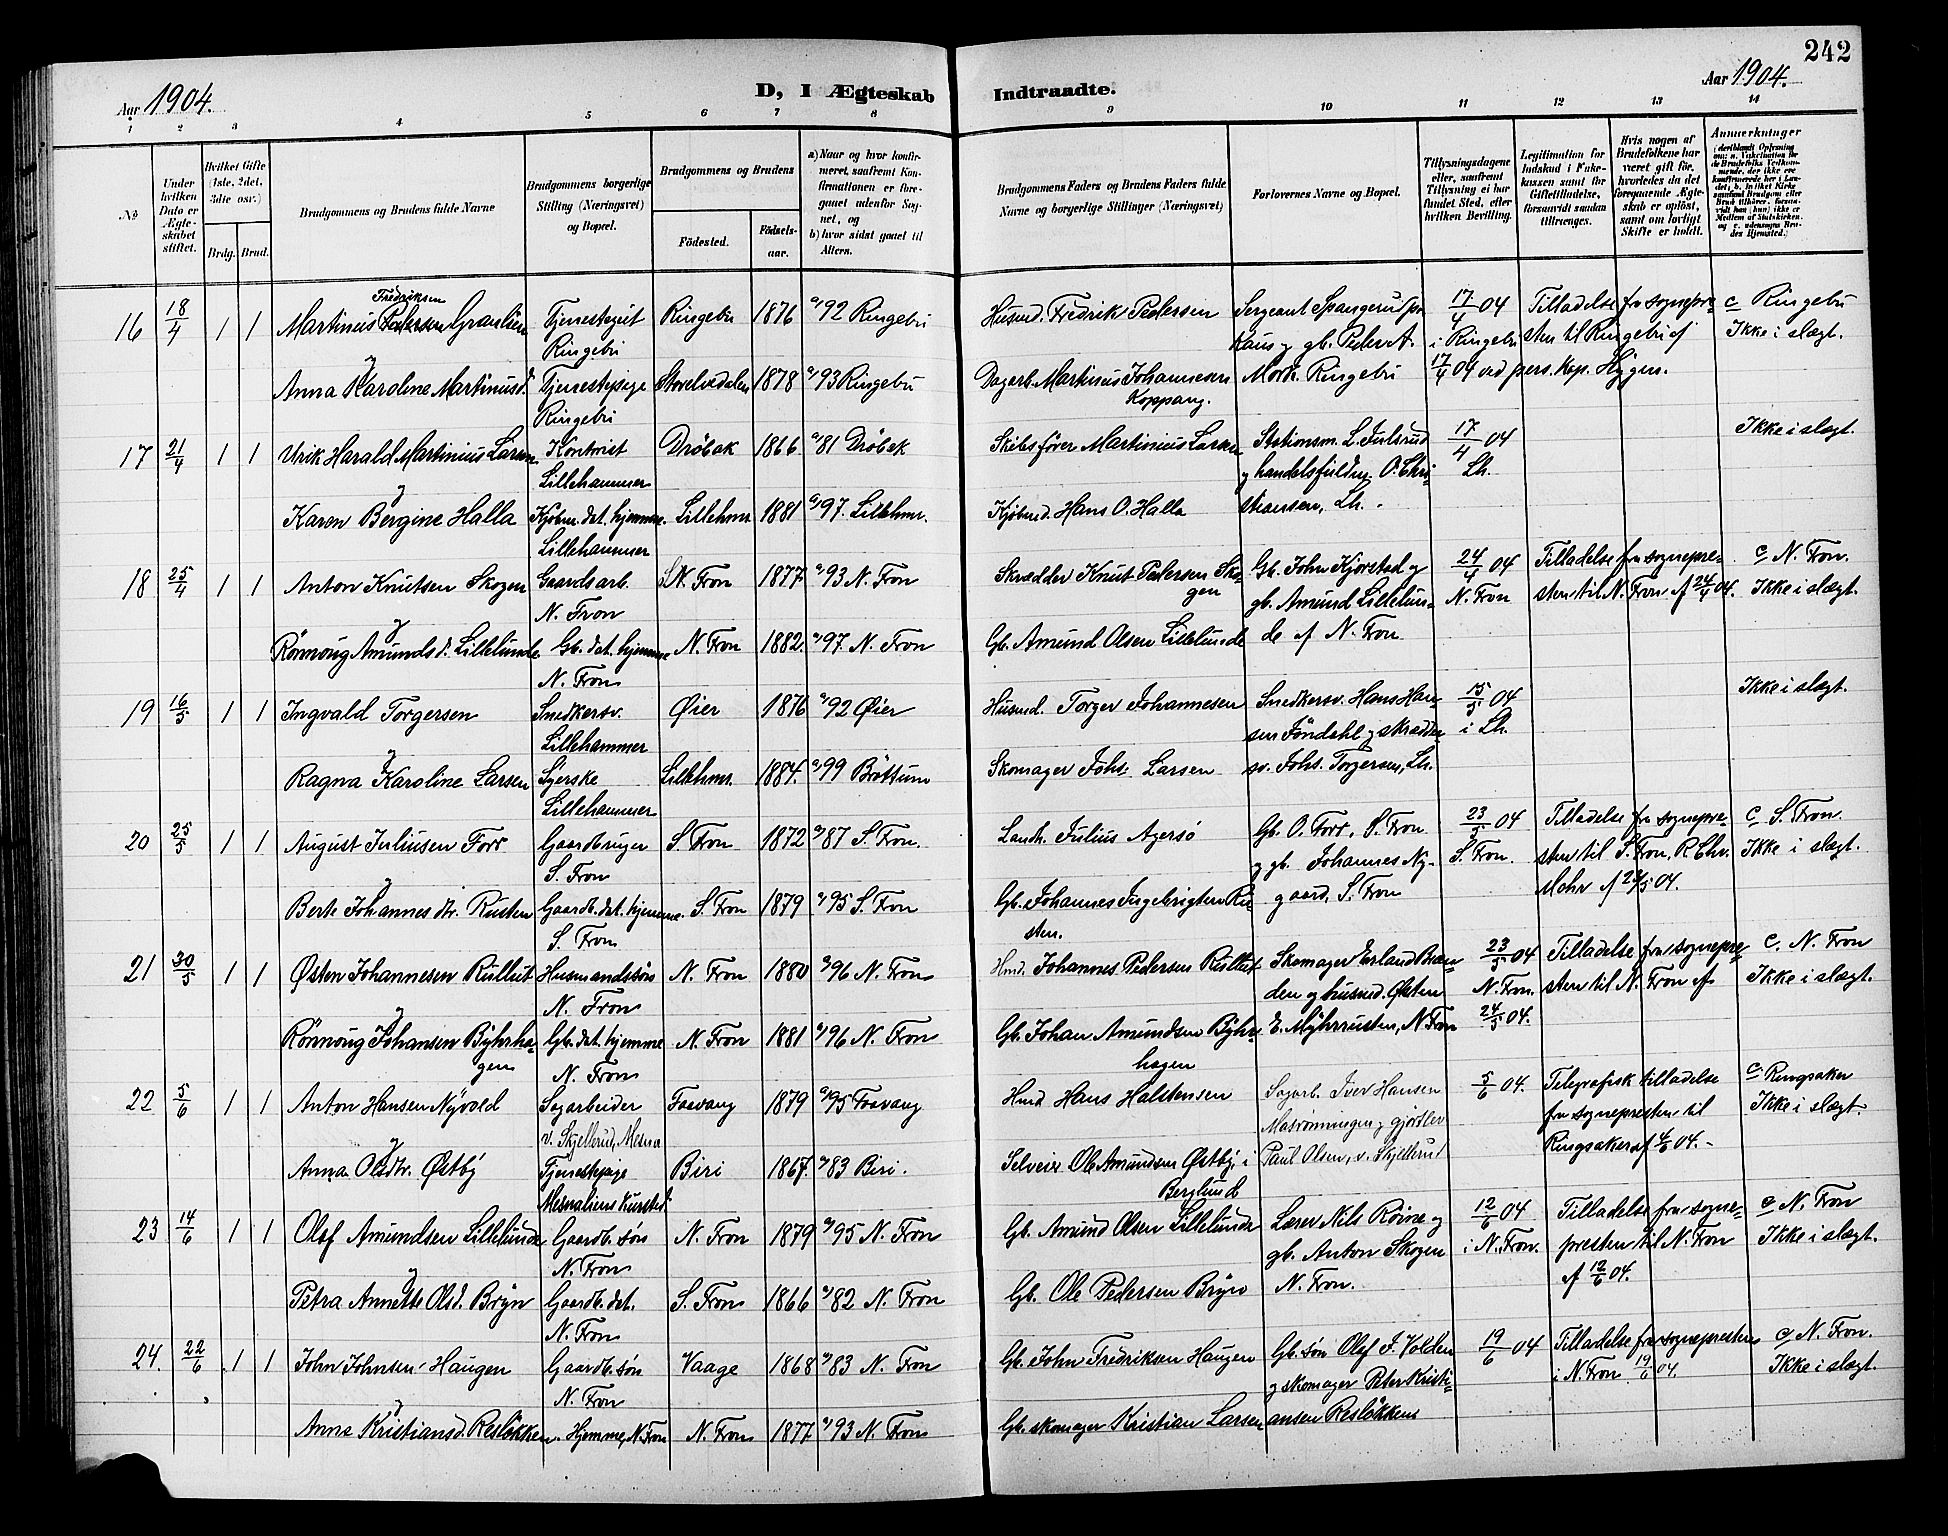 242
Aar 1904.
D, I Ægteskab Indtraadte.
Aar 1904.
1 2 3 4 5 6 7 8 9 10 11 12 13 14
No
Under hvilken Dato er Ægteskabet stiftet.
Hvilket Gifte (1ste, 2det, 3die osv.)
Brdg. Brud.
Brudgommens og Brudens fulde Navne
Brudgommens borgerlige Stilling (Næringsvei) og Bopæl.
Brudgommens og Brudens
Födested.
Födselsaar.
a) Naar og hvor konfirmeret, saafremt Konfirmationen er foregaaet udenfor Sognet, og
b) hvor sidst gaaet til Alters.
Brudgommens Faders og Brudens Faders fulde Navne og borgerlige Stillinger (Næringsvei)
Forlovernes Navne og Bopæl.
Tillysningsdagene eller, saafremt Tillysning ei har fundet Sted, efter hvilken Bevilling.
Legitimation for Indskud i Enkekassen samt for Giftetilladelse, forsaavidt saadan tiltrænges.
Hvis nogen af Brudefolkene har været gift för, hvorledes da det foregaaende Ægteskab er oplöst, samt om lovligt Skifte er holdt.
Anmærkninger
16 18/4 1 1 Martinius Fredriksen Pedersen Graulien Tjenestegut Ringebu Ringebu 1876 a/92 Ringebu Husmd. Fredrik Pedersen Sergeant Spangerud paa 17/4 04 i Ringebu Tilladelse fra sognepresten til Ringebu af c Ringebu Ikke i slægt.
og Anna Karoline Martinusd. Tjenestepige Ringebu Storelvedalen 1878 a/93 Ringebu Dagarb. Martinus Johannesen Koppang. Kaus og gb. Peder A. Mork. Ringebu 17/4 04 ved pers. kap. Hygen.
17 21/4 1 1 Urik Harald Martinius Larsen Kontorist Lillehammer Dröbak 1866 a/81 Dröbak Skibsförer Martinius Larsen Stationsm. L. Julsrud 17/4 04 Lh. Ikke i slægt.
og Karen Bergine Halla Kjöbm. dat. hjemme. Lillehammer Lillehmr 1881 a/97. Lillehmr. Kjöbmd. Hans O. Halla og handelsfuldm. O. Christiansen, Lh.
18 25/4 1 1 Anton Knutsen Skogen Gaardsarb. N. Fron N. Fron 1877 a/93 N. Fron Skrædder Knut Pedersen Skogen Gb. John Kjorstad og 24/4 04 N. Fron Tilladelse fra sognepresten til N. Fron af 24/4 04. c N. Fron. Ikke i slægt.
og Rönnoug Amundsd. Lillelunde Gb. dat. hjemme N. Fron N. Fron 1882. a/97. N. Fron Gb. Amund Olsen Lillelunde gb. Amund Lillelunde af N. Fron
19 16/5 1 1 Ingvald Torgersen Snedkersv. Lillehammer Øier 1876 a/92 Øier Husmd. Torger Johannesen Snedkersv. Hans Hansen 15/5 04 i Lh. Ikke i slægt.
og Ragna Karoline Larsen Syerske Lillehammer Lillehmr. 1884. a/99 Bröttum Skomager Johs. Larsen Föndahl og skræddersv. Johs. Torgersen, Lh.
20 25/5 1 1 August Juliusen Forr Gaardbruger S. Fron S. Fron 1872 a/87 S. Fron. Landh. Julius Agersö Gb. O. Forr, S. Fron 23/5 04 S. Fron. Tilladelse fra sognepresten til S. Fron, R Chr. Mohr af 24/5 04. c S. Fron Ikke i slægt.
og Berte Johannesdtr. Rusten Gaardb. dat. hjemme. S. Fron S. Fron 1879 a/95 S. Fron Gb. Johannes Ingebrigtsen Rusten. og gb. Johannes Nygaard, S. Fron
21 30/5 1 1 Østen Johannesen Rullut Husmandssön N. Fron N. Fron 1880 a/96 N. Fron Hmd. Johannes Pedersen Rullut Skomager Erland Brænden 23/5 04 N. Fron. 24/5 04. Tilladelse fra sognepresten til N. Fron af c. N. Fron Ikke i slægt.
og Rönnoug Johansen Byhrhagen Gb. dat. hjemme N. Fron N. Fron 1881 a/96 N. Fron Gb. Johan Amundsen Byhrhagen og husmd. Østen E. Myhrrusten, N. Fron
22 5/6 1 1 Anton Hansen Nyvold Sagarbeider v. Skjellerud, Mesna Faavang 1879 a/95 Faavang Hmd Hans Halstensen Sagarb. Iver Hansen 5/6 04. Telegrafisk tilladelse fra sognepresten til Ringsaker af 4/6 04. c. Ringsaker Ikke i slægt.
og Anna Olsdtr. Østby Tjenestepige Mesnaliens kursted Biri 1867. a/83 Biri. Selveier Ole Amundsen Østby i Berglund Masrönningen og gjørtler Paul Olsen, v. Skjellerud
23 14/6 1 1 Olaf Amundsen Lillelunde Gaardb. sön N. Fron N. Fron 1879 a/95 N. Fron Gb. Amund Olsen Lillelunde Lærer Nils Röine og 12/6 04 i N. Fron. Tilladelse fra sognepresten til N. Fron af 12/6 04. c N. Fron Ikke i slægt.
og Petra Annette Olsd. Bryn Gaardb. dat. N. Fron S. Fron 1866 a/82 N. Fron Gb. Ole Pedersen Bryn gb. Anton Skogen N. Fron.
24. 22/6 1 1 John Johnsen Haugen Gaardb. sön N. Fron Vaage 1868 a/83 N. Fron Gb. John Fredriksen Haugen Gb. sön Olaf J. Volden 19/6 04 Tilladelse fra sognepresten i N. Fron 19/6 04. c N. Fron. Ikke i slægt.
og Anne Kristiansd. Reslökken. Hjemme, N. Fron N. Fron 1877 a/93 N. Fron Gb. skomager Kristian Larsen og skomager Peter Kristiansen Reslökken